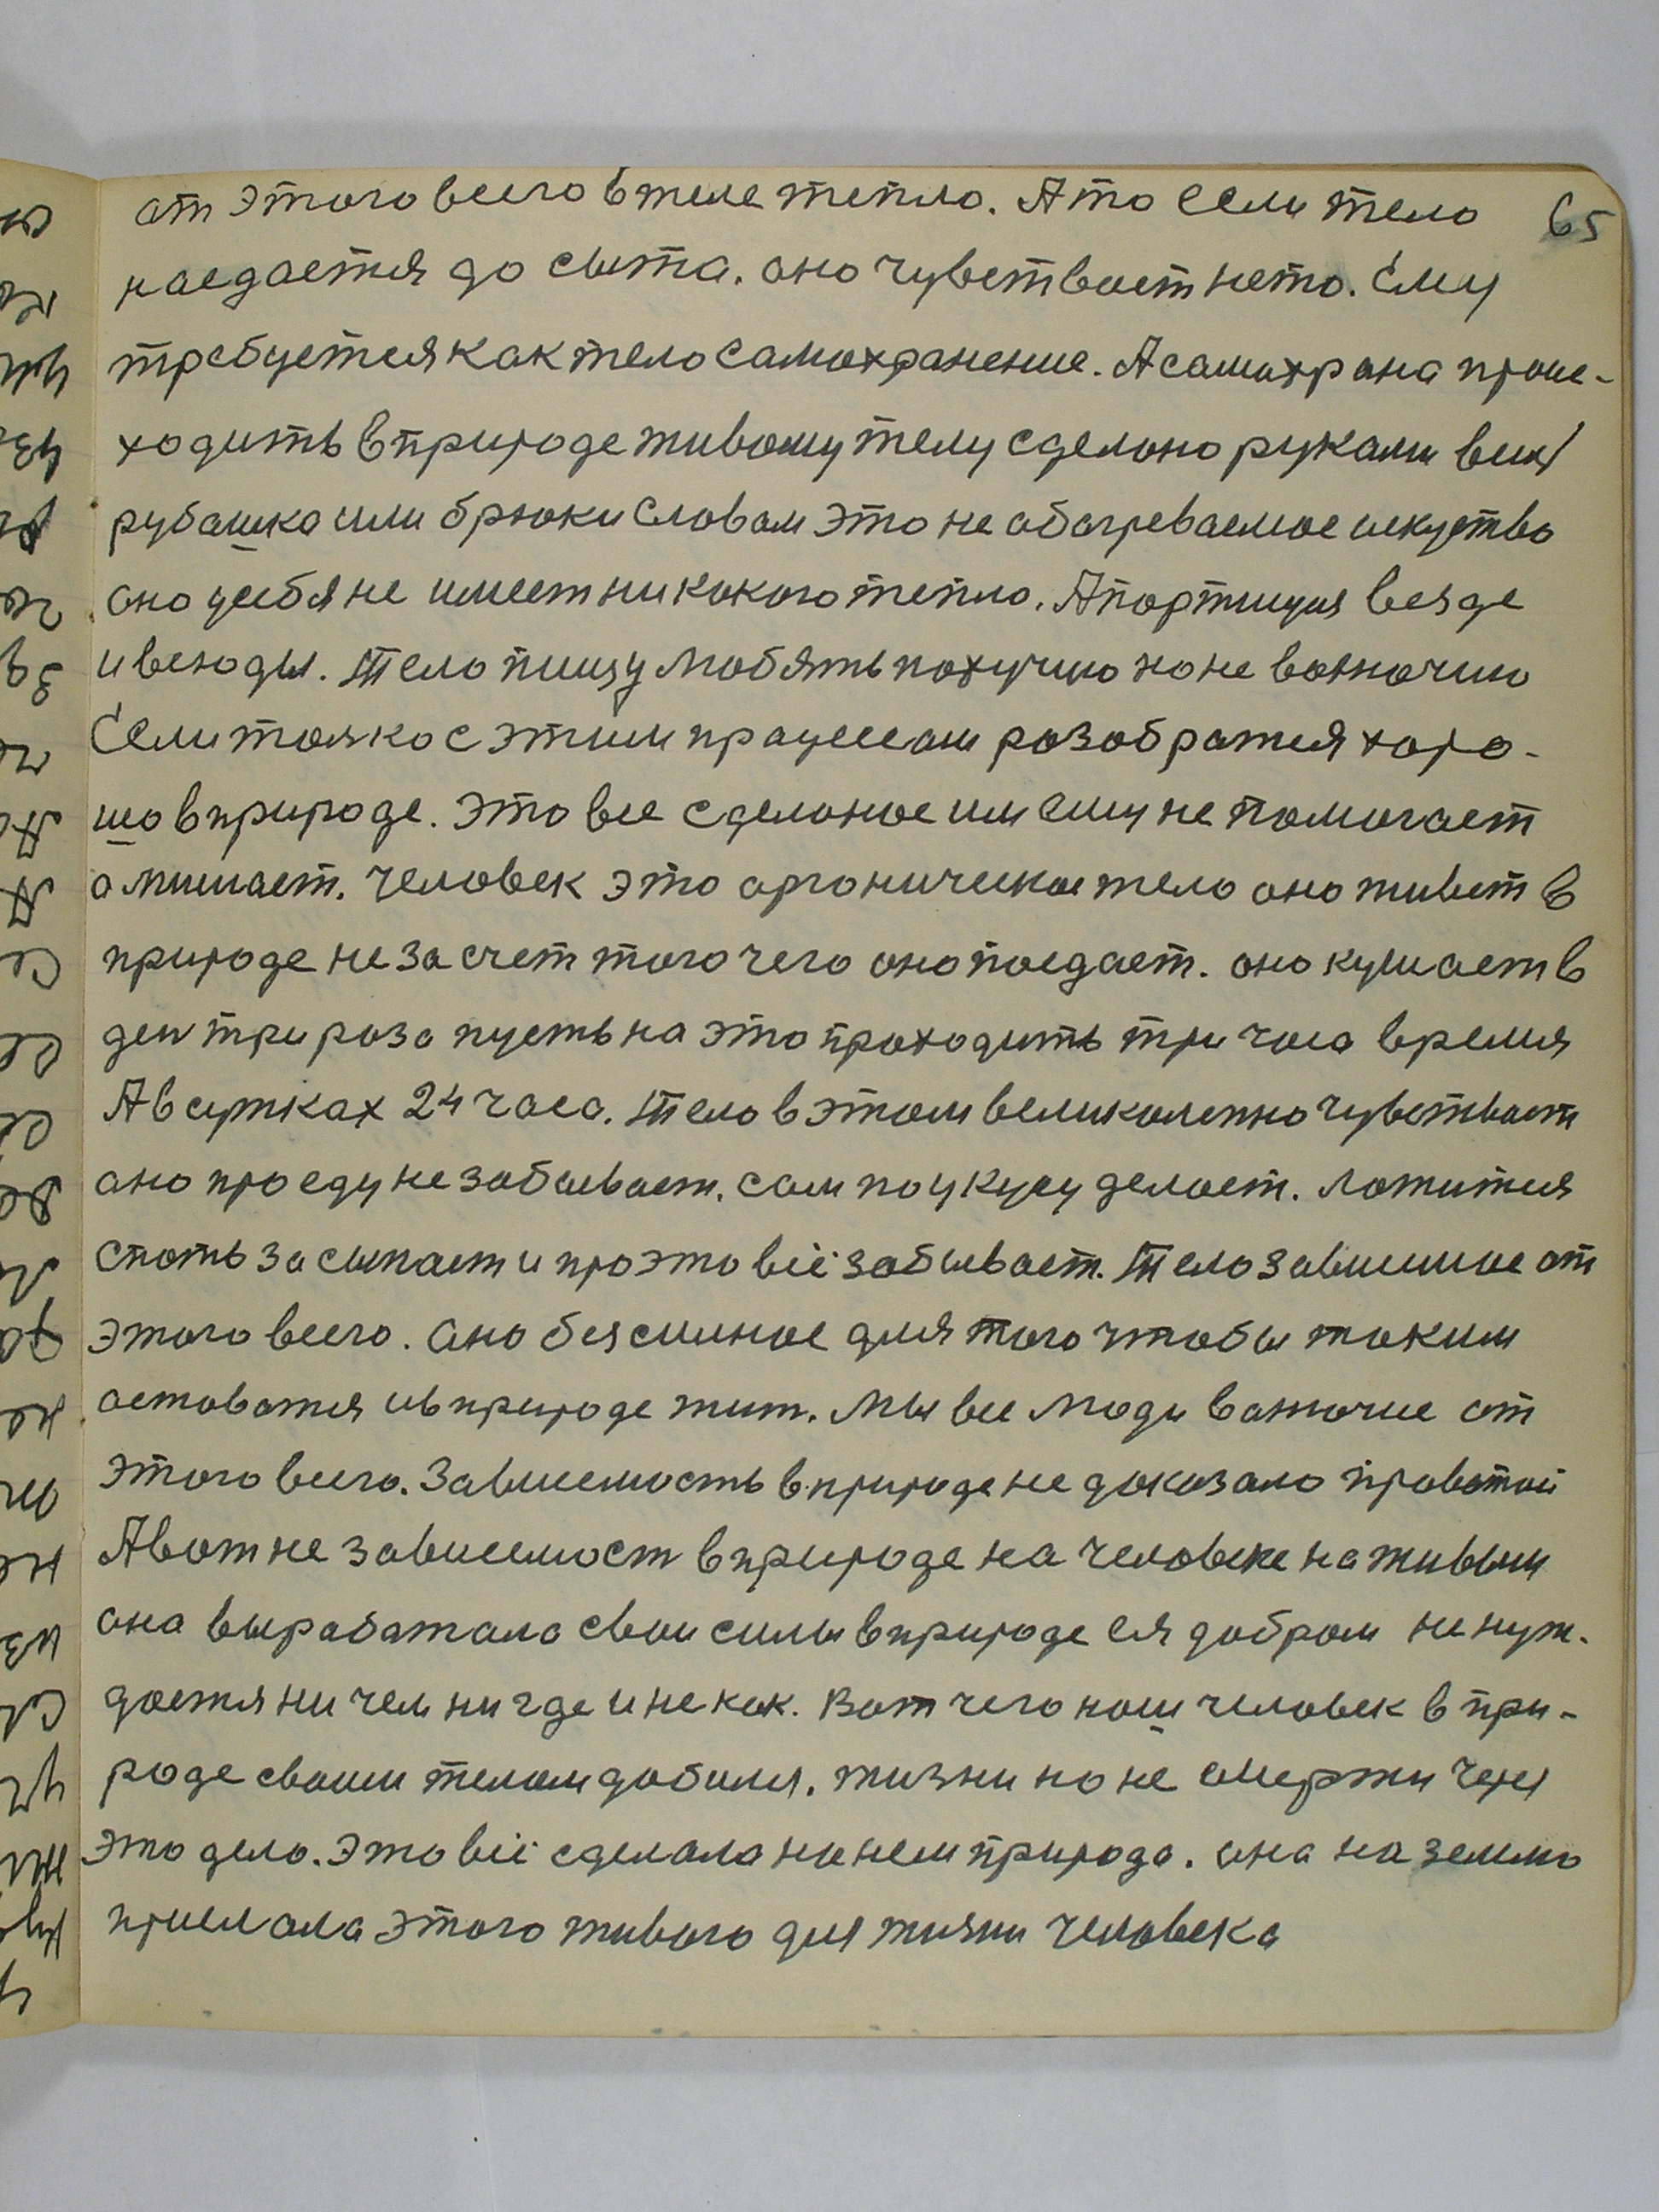 от этого всего в теле тепло. А то если тело 65
наедается до сыта. оно чувствает нето. Ему
требуется как тело самохранение. А самохрана проис-
ходить в природе живому телу сделоно руками
рубашка или брюки словам это не обогреваемое искуство
оно усебя не имеет никокого тепло. А портиця везде
и всюды. Тело пищу любять пахучию но не вонючию
Если толко с этим працессом розобратся хоро-
шо в природе. Это все сделоное им ему не помогает
а мишает. Человек это органическое тело оно живет в
природе не за счет того чего оно поедает. оно кушает в
ден три роза пусть на это проходить три часа время
А всутках 24 часа. Тело в этом великолепно чувствает
оно про еду не забывает. сам по укусу делает. ложится
спать засыпает и про это всё забывает. Тело зависимое от
этого всего. оно безсилное для того чтобы таким
астоватся и в природе жит. Мы все люди вонючие от
этого всего. Зависемость в природе не доказало правотой
А вот не зависемост в природе на человеке на живым
она выработала свои силы в природе ся добром не нуж-
дается ни чем ни где и не как. Вот чего нош человек в при-
роде своим телом добился. жизни но не смерти через
это дело. Это всё сделала на нем природа. она на землю
прислала этого живого для жизни человека